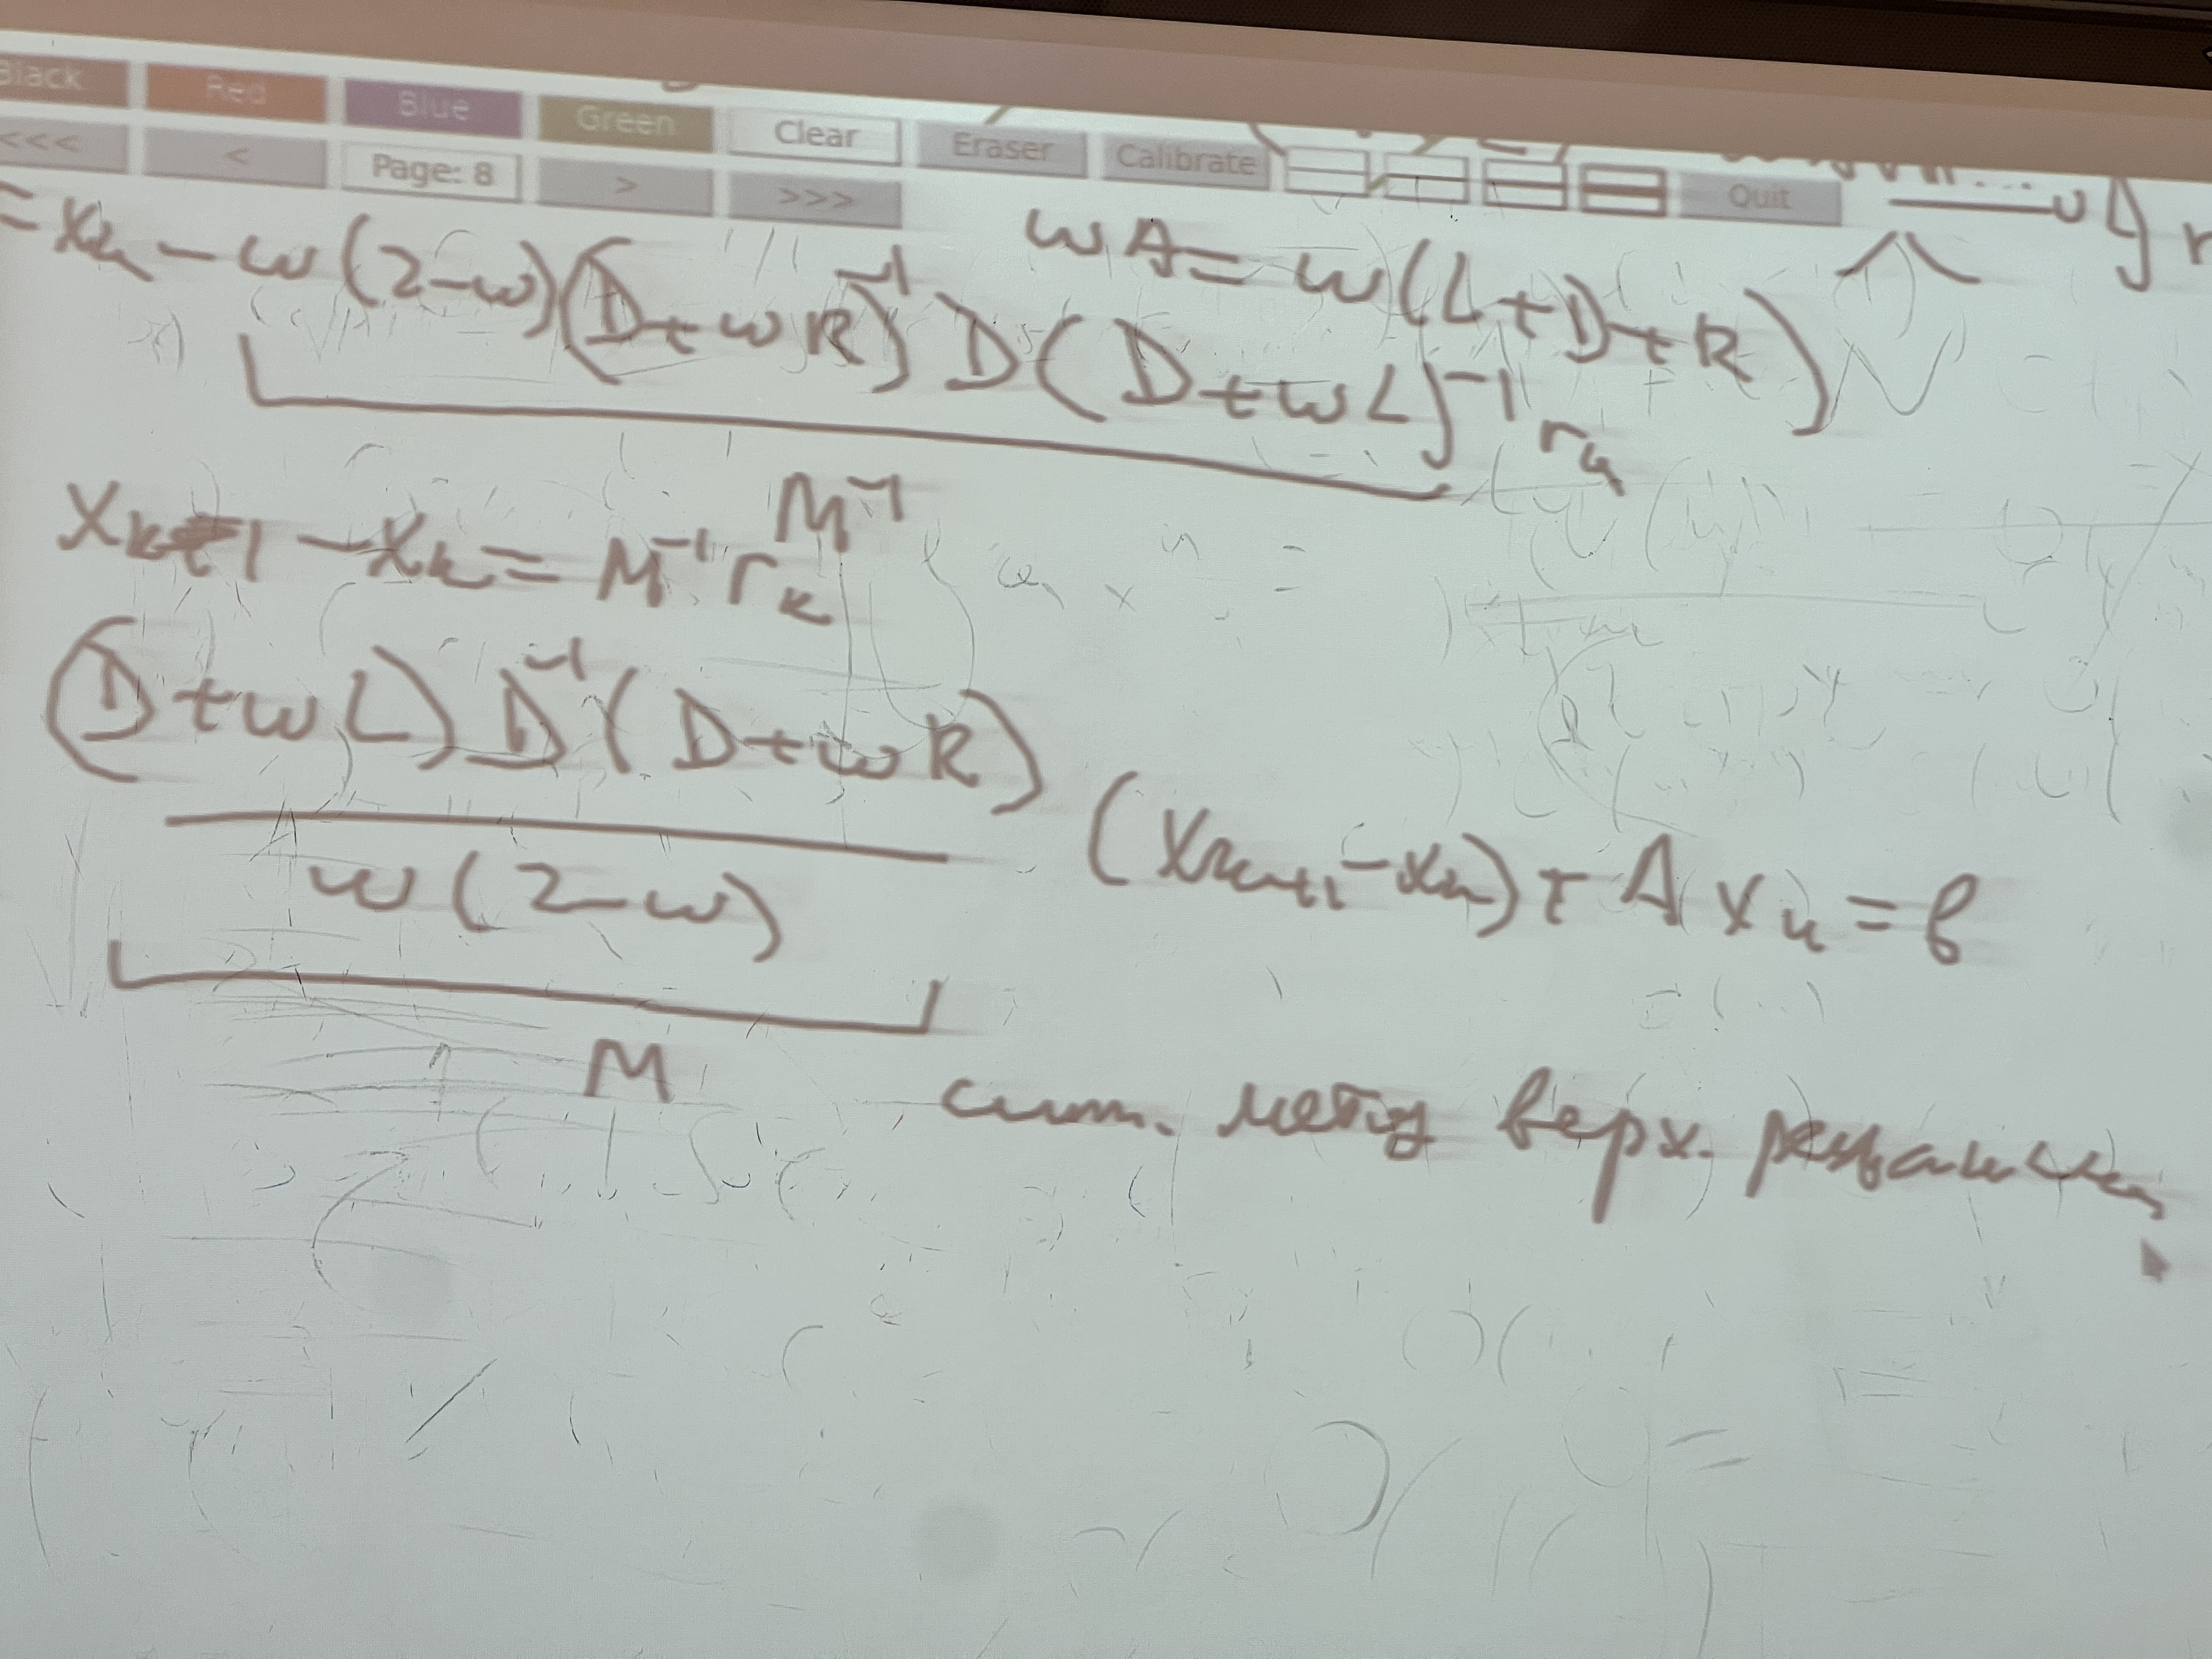 Black Red Blue Green Clear Eraser Calibrate
<<< < Page: 8 > >>> Quit
ωA = ω(L+D+R)
= xₖ − ω(2−ω)(D+ωR)⁻¹ D(D+ωL)⁻¹ rₖ
M⁻¹
xₖ₊₁ − xₖ = M⁻¹ rₖ
(D+ωL) D⁻¹ (D+ωR)
(xₖ₊₁ − xₖ) + A xₖ = b
ω(2−ω)
M
сим. метод верх. релаксации